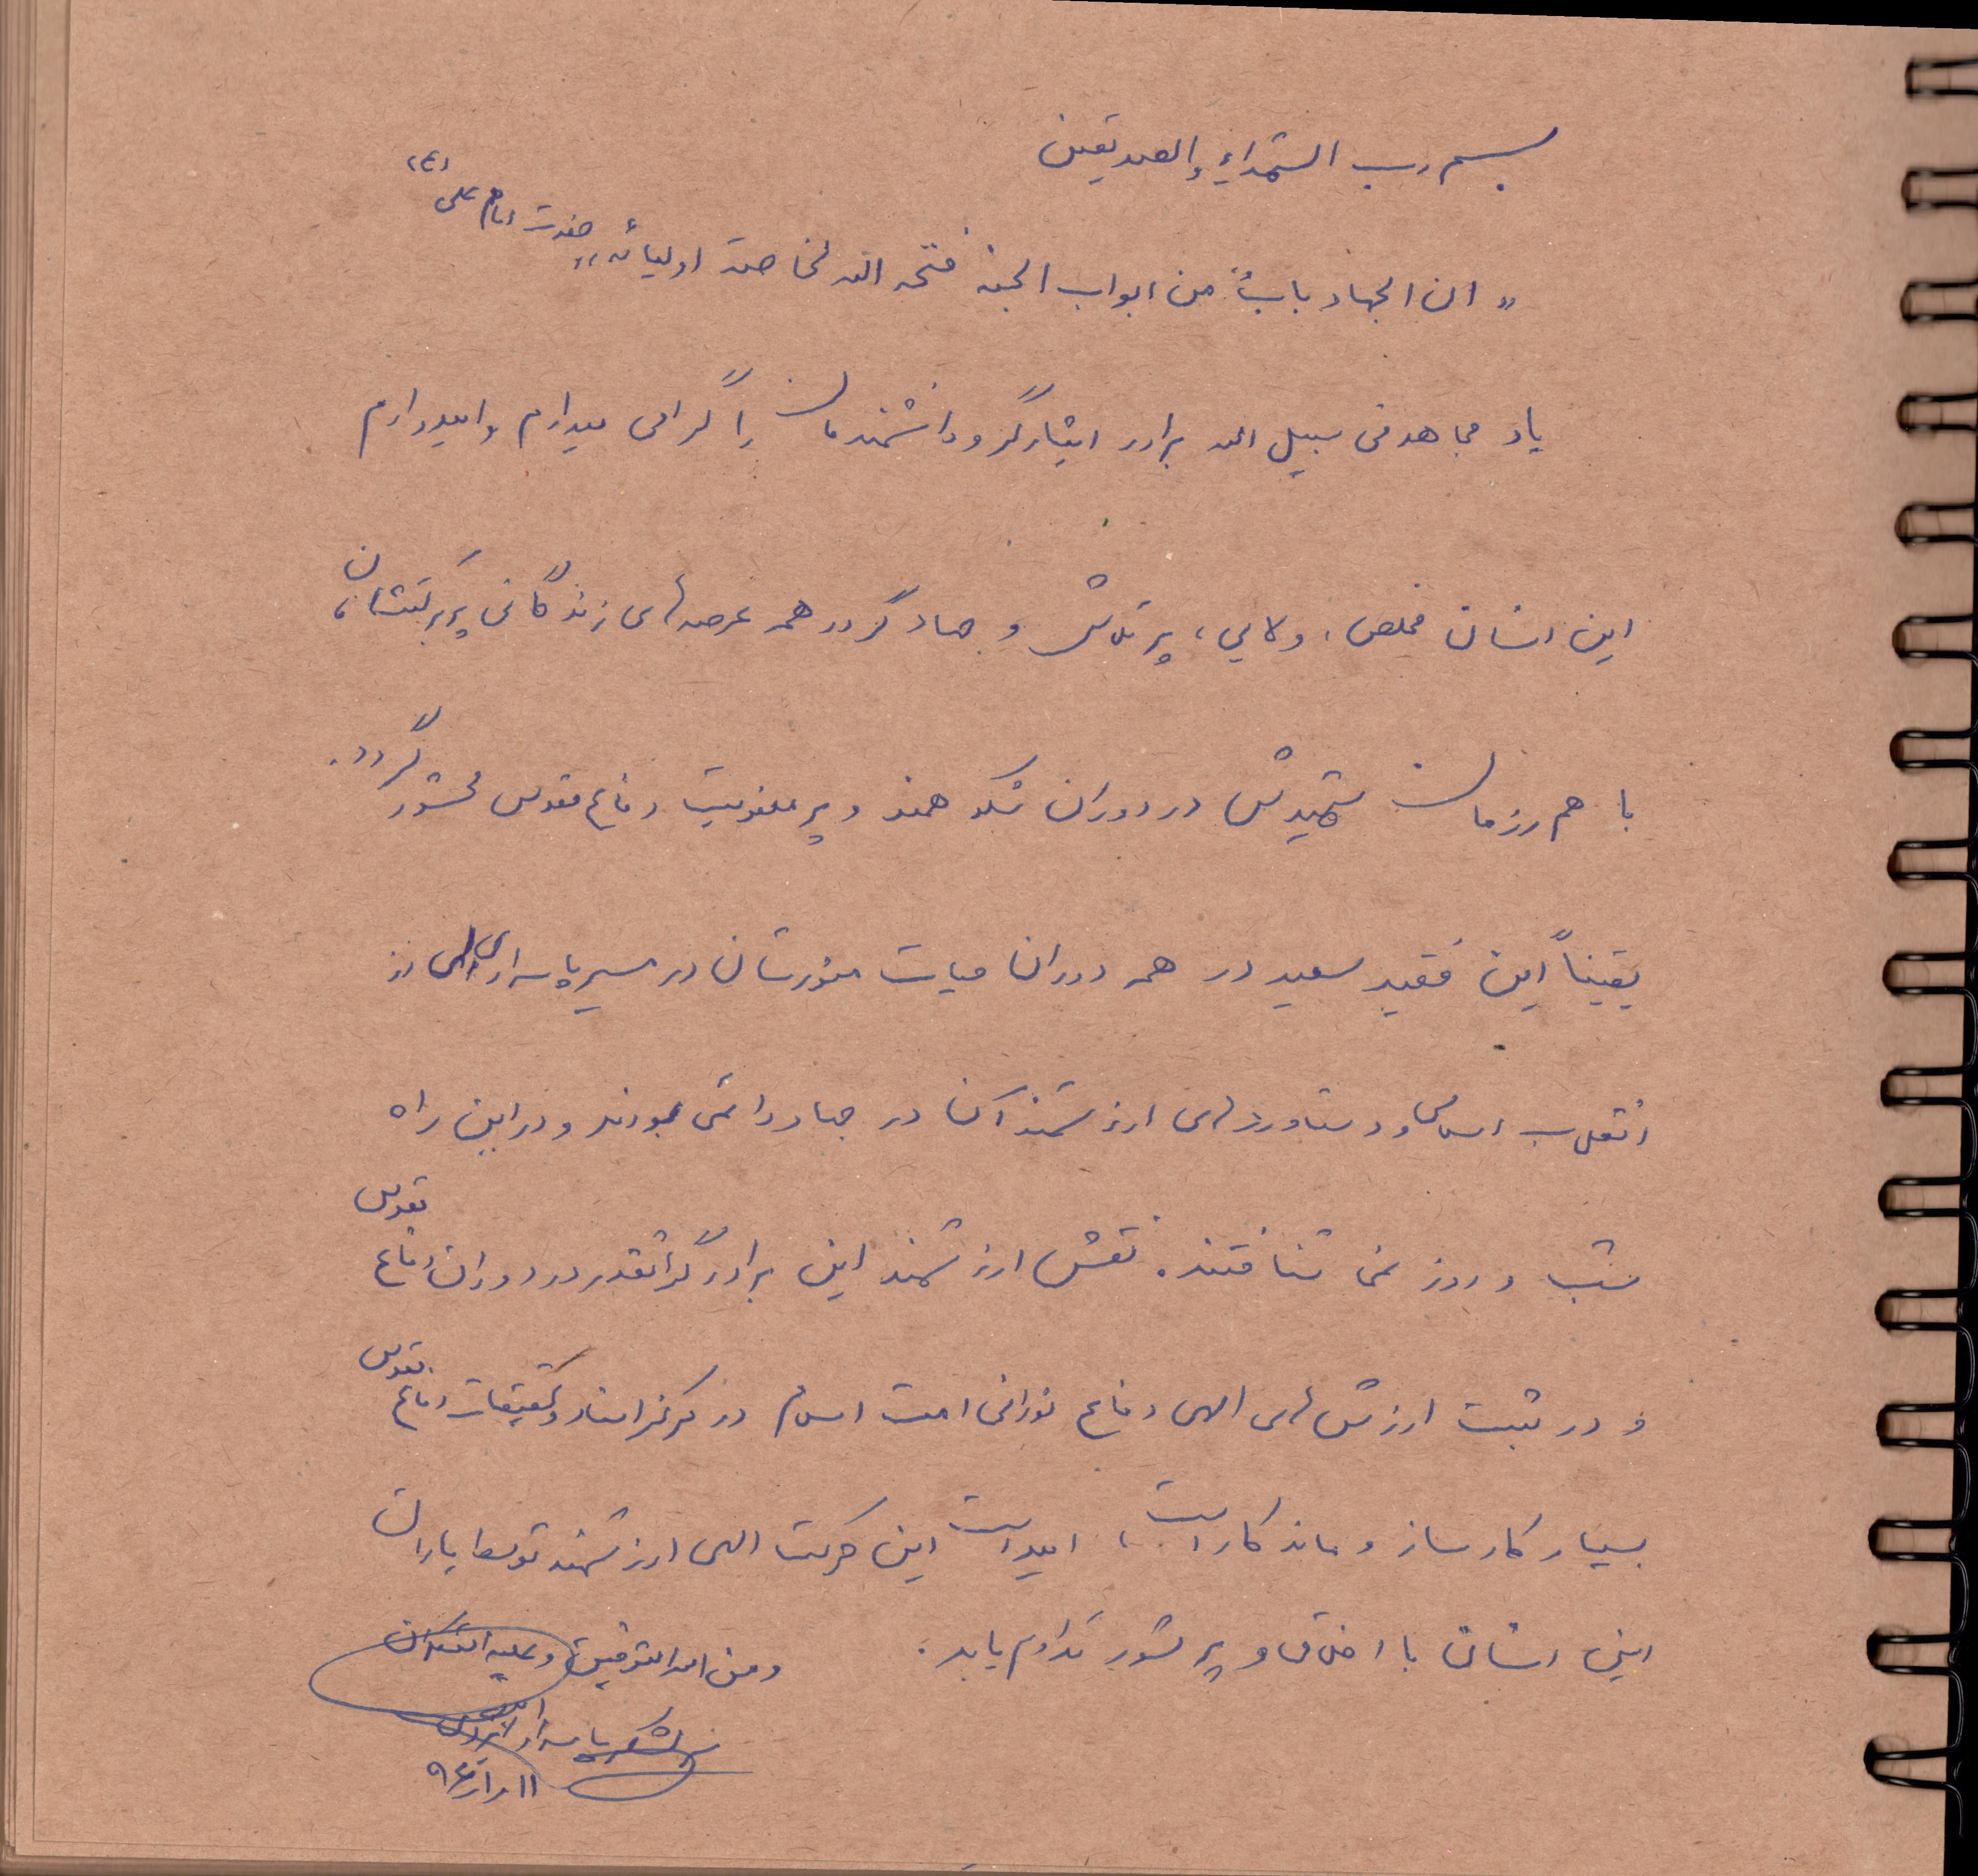 بسم رب الشهداء والصدیقین
« ان الجهاد بابٌ من ابواب الجنه فتحه الله لخاصة اولیائه » حضرت امام علی (ع)
یاد مجاهد فی سبیل الله برادر ایثارگر و دانشمندمان را گرامی میدارم و امیدوارم
این انسان مخلص، ولایی، پرتلاش و جهادگر در همه عرصه‌های زندگانی پربرکتشان،
با هم رزمان شهیدش در دوران شکوهمند و پر معنویت دفاع مقدس محشور گردد.
یقیناً این فقید سعید در همه دوران حیات منورشان در مسیر پاسداری از
انقلاب اسلامی و دستاوردهای ارزشمند آن در جهاد دائمی بودند و در این راه
شب و روز نمی‌شناختند. نقش ارزشمند این برادر گرانقدر در دوران دفاع مقدس
و در ثبت ارزش‌های الهی دفاع نورانی امت اسلام در مرکز اسناد و تحقیقات دفاع مقدس
بسیار کارساز و ماندگار است، امید است این حرکت الهی ارزشمند توسط یاران
این انسان با اخلاق و پر شور تداوم یابد.
و من الله التوفیق و علیه التکلان
سرلشکر پاسدار